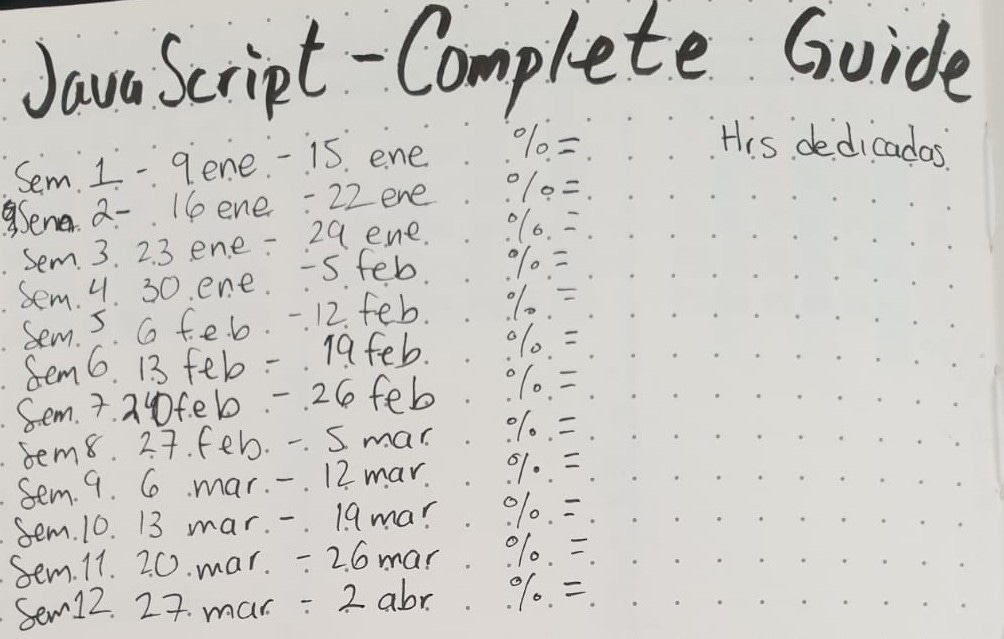 JavaScript - Complete Guide
Hrs dedicadas
Sem. 1 - 9 ene - 15 ene % =
Sem 2 - 16 ene - 22 ene % =
Sem. 3. 23 ene - 29 ene. % =
Sem. 4. 30 ene. - 5 feb. % =
Sem. 5. 6 feb. - 12 feb. % =
Sem 6. 13 feb - 19 feb. % =
Sem. 7. 20 feb - 26 feb % =
Sem 8. 27 feb. - 5 mar % =
Sem. 9. 6 mar. - 12 mar. % =
Sem. 10. 13 mar. - 19 mar % =
Sem. 11. 20 mar. - 26 mar % =
Sem 12. 27 mar - 2 abr % =